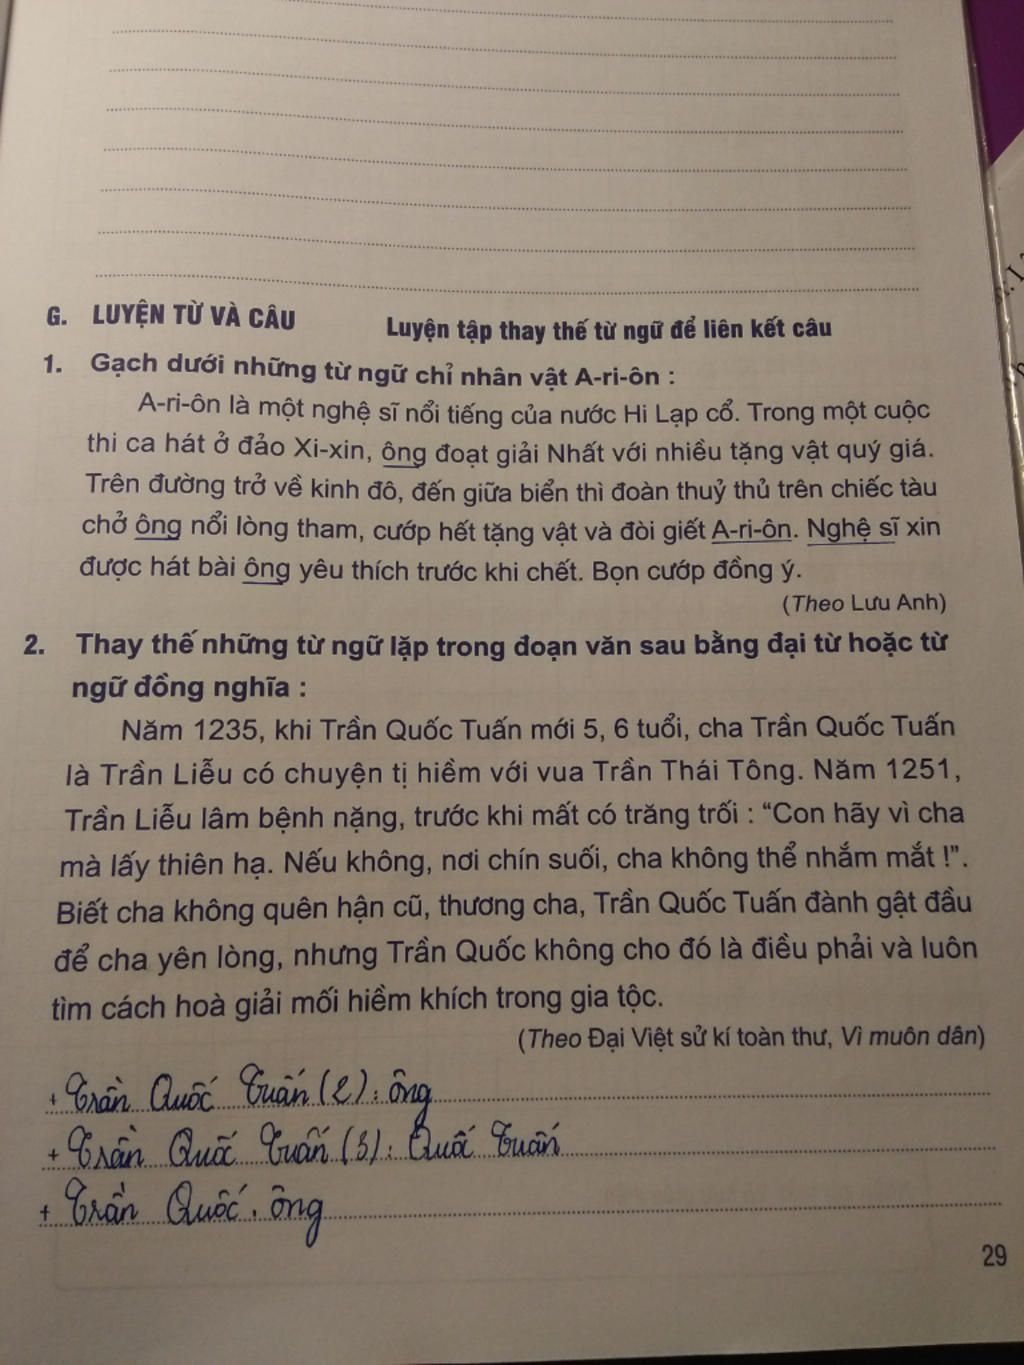 G. LUYỆN TỪ VÀ CÂU
Luyện tập thay thế từ ngữ để liên kết câu
1. Gạch dưới những từ ngữ chỉ nhân vật A-ri-ôn :
A-ri-ôn là một nghệ sĩ nổi tiếng của nước Hi Lạp cổ. Trong một cuộc
thi ca hát ở đảo Xi-xin, ông đoạt giải Nhất với nhiều tặng vật quý giá.
Trên đường trở về kinh đô, đến giữa biển thì đoàn thuỷ thủ trên chiếc tàu
chở ông nổi lòng tham, cướp hết tặng vật và đòi giết A-ri-ôn. Nghệ sĩ xin
được hát bài ông yêu thích trước khi chết. Bọn cướp đồng ý.
(Theo Lưu Anh)
2. Thay thế những từ ngữ lặp trong đoạn văn sau bằng đại từ hoặc từ
ngữ đồng nghĩa :
Năm 1235, khi Trần Quốc Tuấn mới 5, 6 tuổi, cha Trần Quốc Tuấn
là Trần Liễu có chuyện tị hiềm với vua Trần Thái Tông. Năm 1251,
Trần Liễu lâm bệnh nặng, trước khi mất có trăng trối : “Con hãy vì cha
mà lấy thiên hạ. Nếu không, nơi chín suối, cha không thể nhắm mắt !”.
Biết cha không quên hận cũ, thương cha, Trần Quốc Tuấn đành gật đầu
để cha yên lòng, nhưng Trần Quốc không cho đó là điều phải và luôn
tìm cách hoà giải mối hiềm khích trong gia tộc.
(Theo Đại Việt sử kí toàn thư, Vì muôn dân)
+ Trần Quốc Tuấn (2) : ông
+ Trần Quố Tuấn (3) : Quố Tuấn
+ Trần Quốc . ông
29